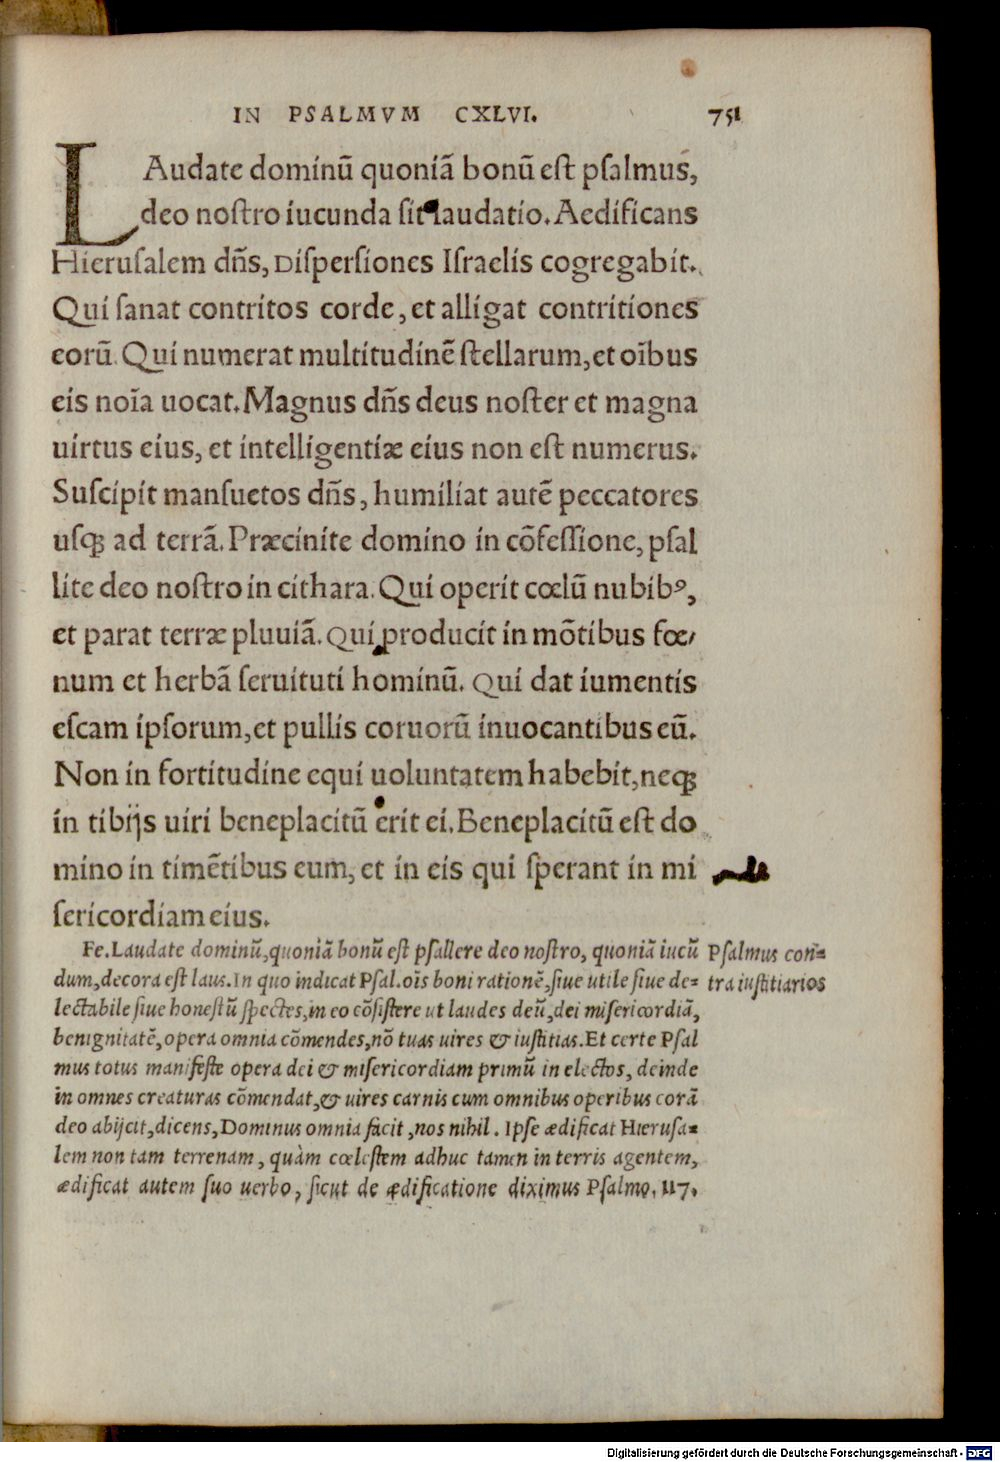 IN PSALMVM CXLVI. 751
LAudate dominũ quoniã bonũ est psalmus,
deo nostro iucunda sit laudatio. Aedificans
Hierusalem dñs, Dispersiones Israelis cogregabit.
Qui sanat contritos corde, et alligat contritiones
eorũ. Qui numerat multitudinẽ stellarum, et oĩbus
eis noĩa uocat. Magnus dñs deus noster et magna
uirtus eius, et intelligentiæ eius non est numerus.
Suscipit mansuetos dñs, humiliat autẽ peccatores
usqꝫ ad terrã. Præcinite domino in cõfessione, psal
lite deo nostro in cithara. Qui operit cœlũ nubibꝰ,
et parat terræ pluuiã. Qui producit in mõtibus fœ/
num et herbã seruituti hominũ. Qui dat iumentis
escam ipsorum, et pullis coruorũ inuocantibus eũ.
Non in fortitudine equi uoluntatem habebit, neqꝫ
in tibijs uiri beneplacitũ erit ei. Beneplacitũ est do
mino in timẽtibus eum, et in eis qui sperant in mi
sericordiam eius.
Fe. Laudate dominũ, quoniã bonũ est psallere deo nostro, quoniã iucũ
dum, decora est laus. In quo indicat Psal. oĩs boni rationẽ, siue utile siue de=
lectabile siue honestũ spectes, in eo cõsistere ut laudes deũ, dei misericordiã,
benignitatẽ, opera omnia cõmendes, nõ tuas uires & iustitias. Et certe Psal
mus totus manifeste opera dei & misericordiam primũ in electos, deinde
in omnes creaturas cõmendat, & uires carnis cum omnibus operibus corã
deo abijcit, dicens, Dominus omnia facit, nos nihil. Ipse ædificat Hierusa=
lem non tam terrenam, quàm cœlestem adhuc tamen in terris agentem,
ædificat autem suo uerbo, sicut de ædificatione diximus Psalmo. 117.
Psalmus con=
tra iustitiarios
Digitalisierung gefördert durch die Deutsche Forschungsgemeinschaft - DFG